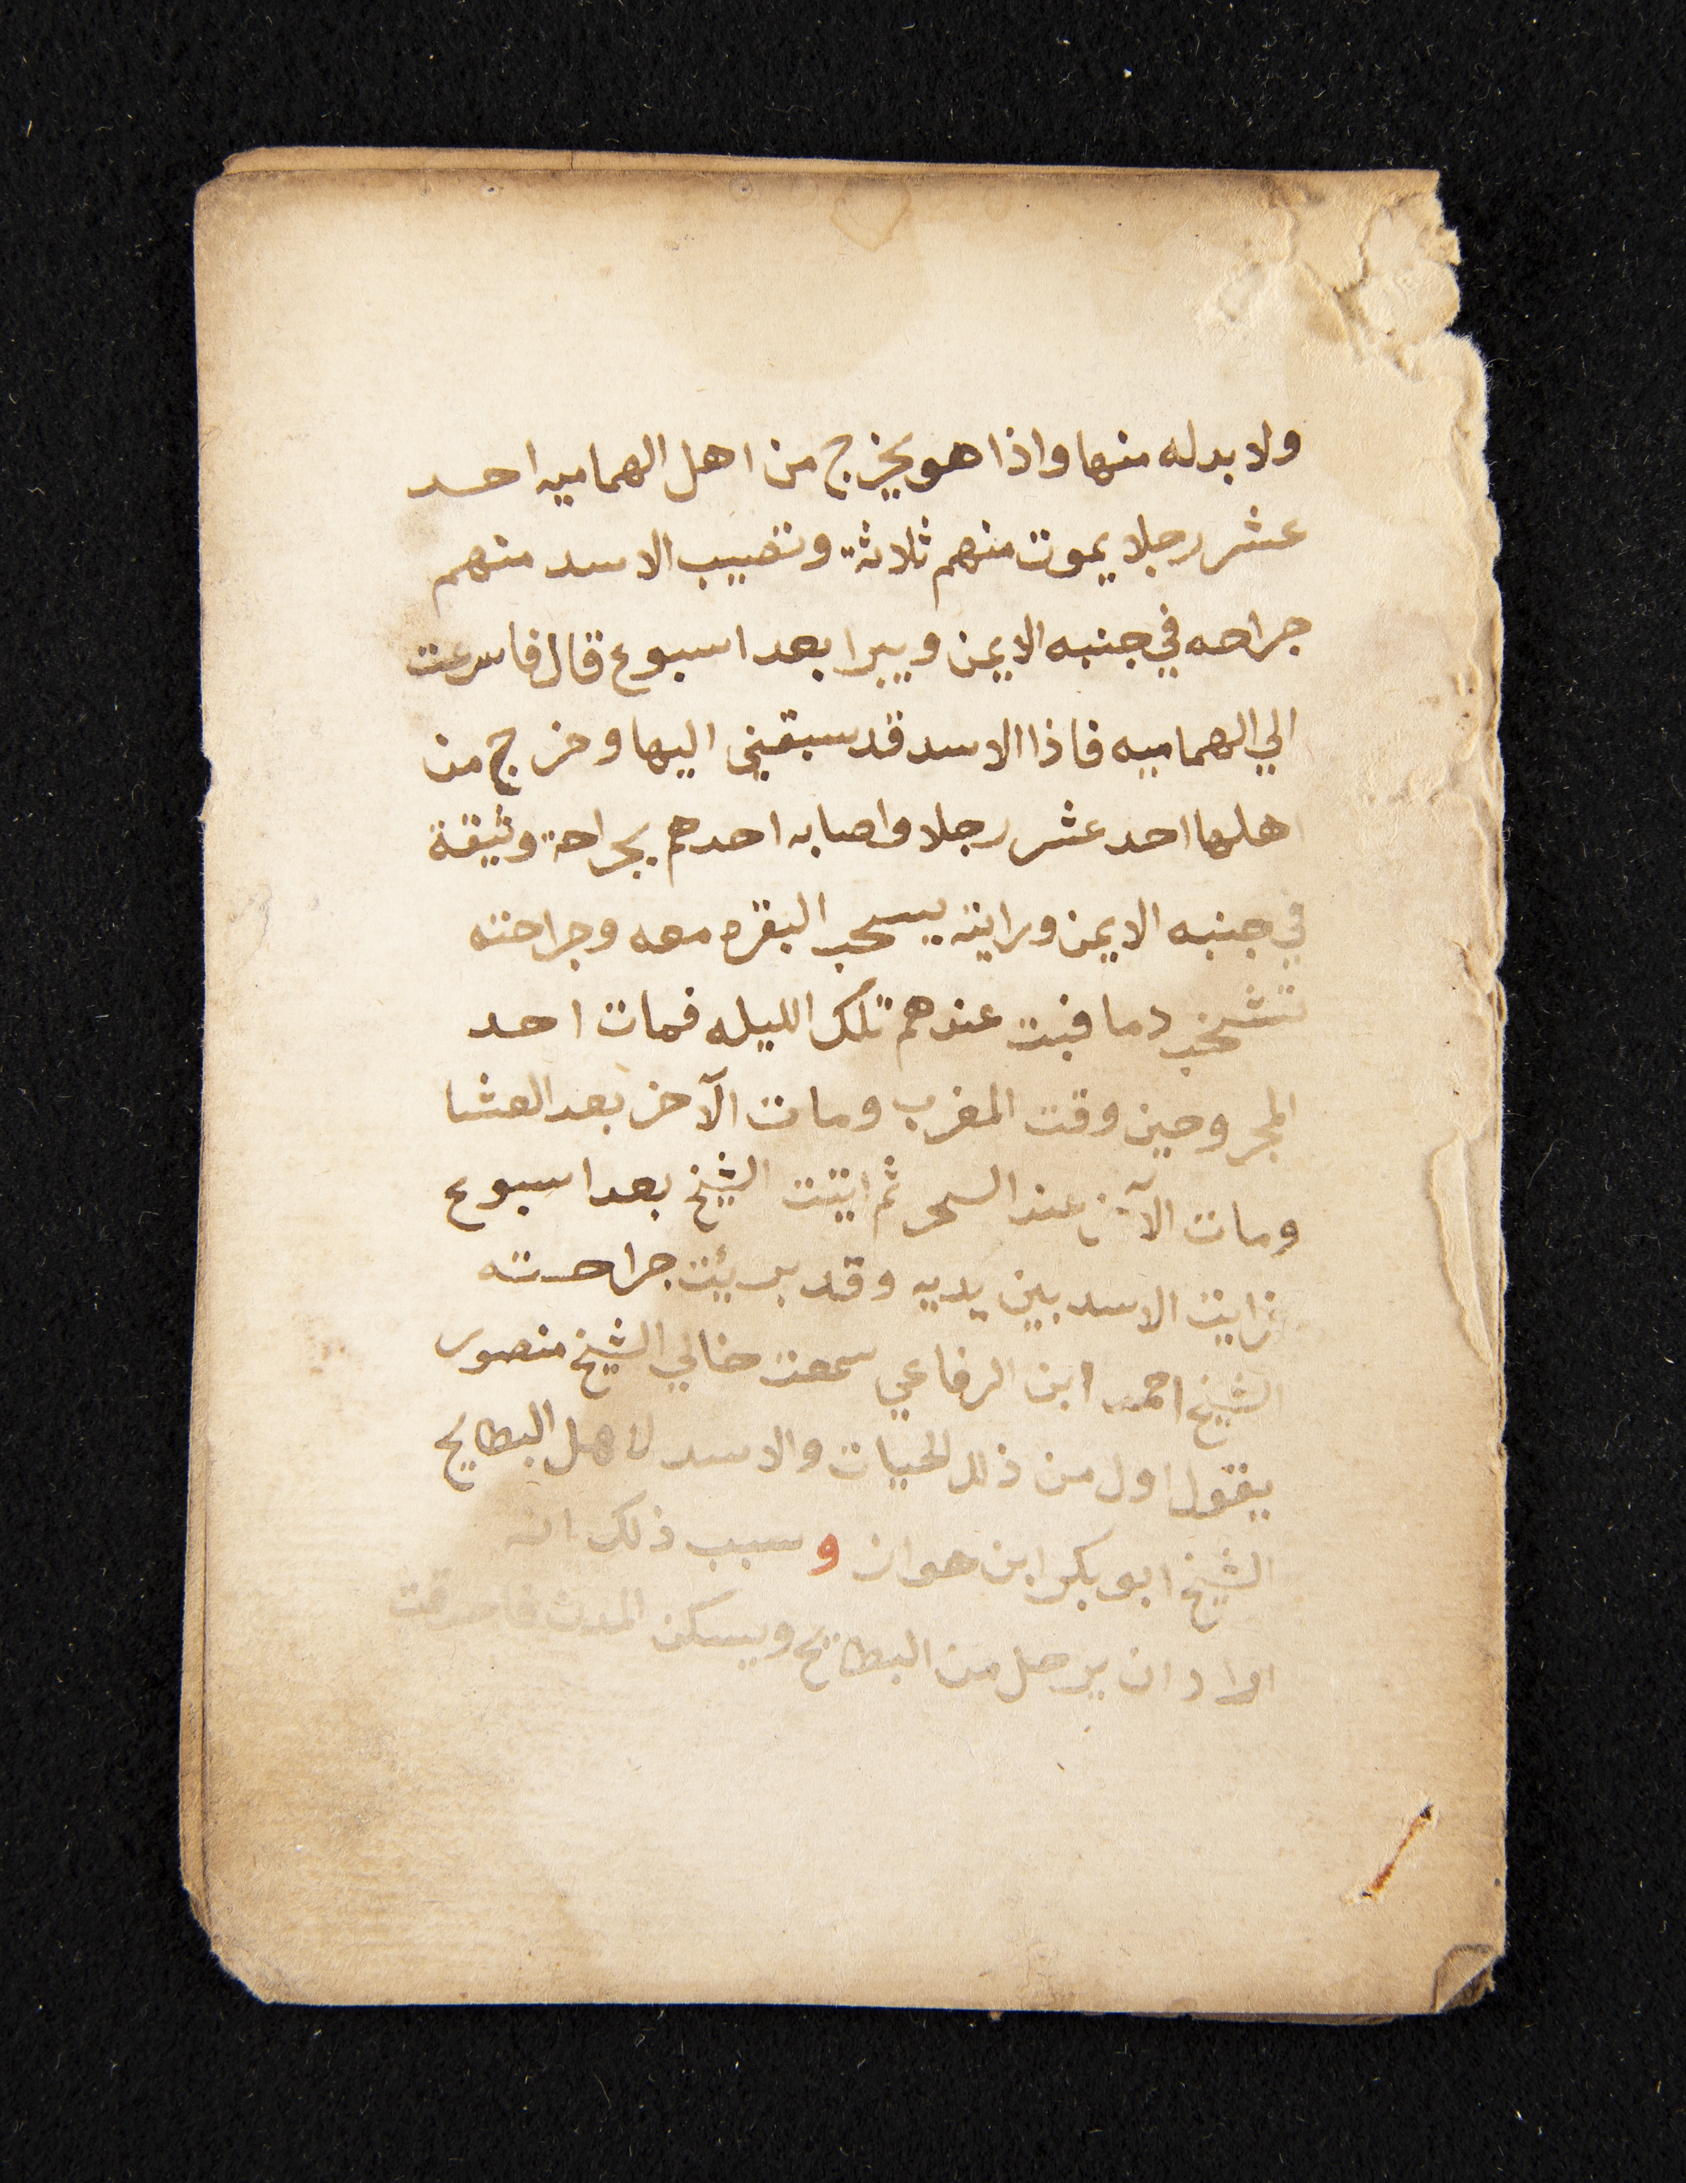 ولا بد له منها واذا هو يخرج من اهل الهماميه احد
عشر رجلا يموت منهم ثلاثة وتصيب الاسد منهم
جراحه في جنبه الايمن ويبرا بعد اسبوع قال فاسرعت
الي الهماميه فاذا الاسد قد سبقني اليها وخرج من
اهلها احد عشر رجلا واصابه احدهم بجراحة وثيقة
في جنبه الايمن ورايته يسحب البقره معه وجراحته
تشخب دما فبت عندهم تلك الليله فمات احد
المجروحين وقت المغرب ومات الآخر بعد العشا
ومات الآخر عند السحر ثم اتيت الشيخ بعد اسبوع
فرايت الاسد بين يديه وقد برئت جراحته
الشيخ احمد ابن الرفاعي سمعت خالي الشيخ منصور
يقول اول من ذلل الحيات والاسد لاهل البطايح
الشيخ ابو بكر ابن هوان وسبب ذلك انه
اراد ان يرحل من البطايح ويسكن المدن